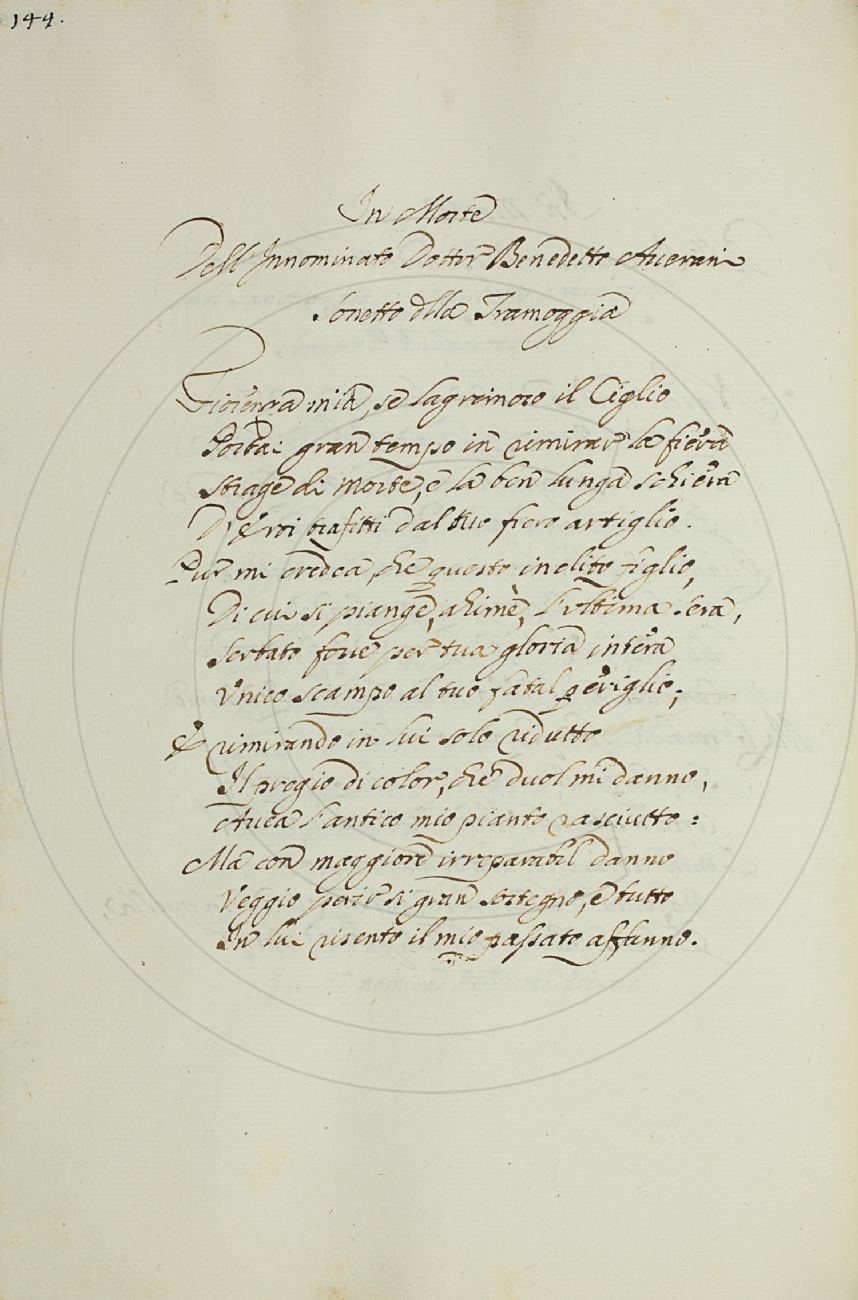 144.
In Morte
Dell' Innominato Dottor Benedetto Averani
Sonetto della Tramoggia
Fiorenza mia, se lagrimoso il Ciglio
Portai gran tempo in rimirar la fiera
Strage di Morte, e la ben lunga schiera
D'Eroi trafitti dal tuo fiero artiglio.
Pur mi credea, che questo inclito figlio,
Di cui si piange, ahimè, l'ultima sera,
Serbato fosse per tua gloria intera
Unico scampo al tuo fatal periglio;
E rimirando in lui solo ridutto
Il pregio di color, che duol mi danno,
Avea l'antico mio pianto rasciutto:
Ma con maggiore irreparabil danno
Veggio perir si gran sostegno, e tutto
In lui risento il mio passato affanno.